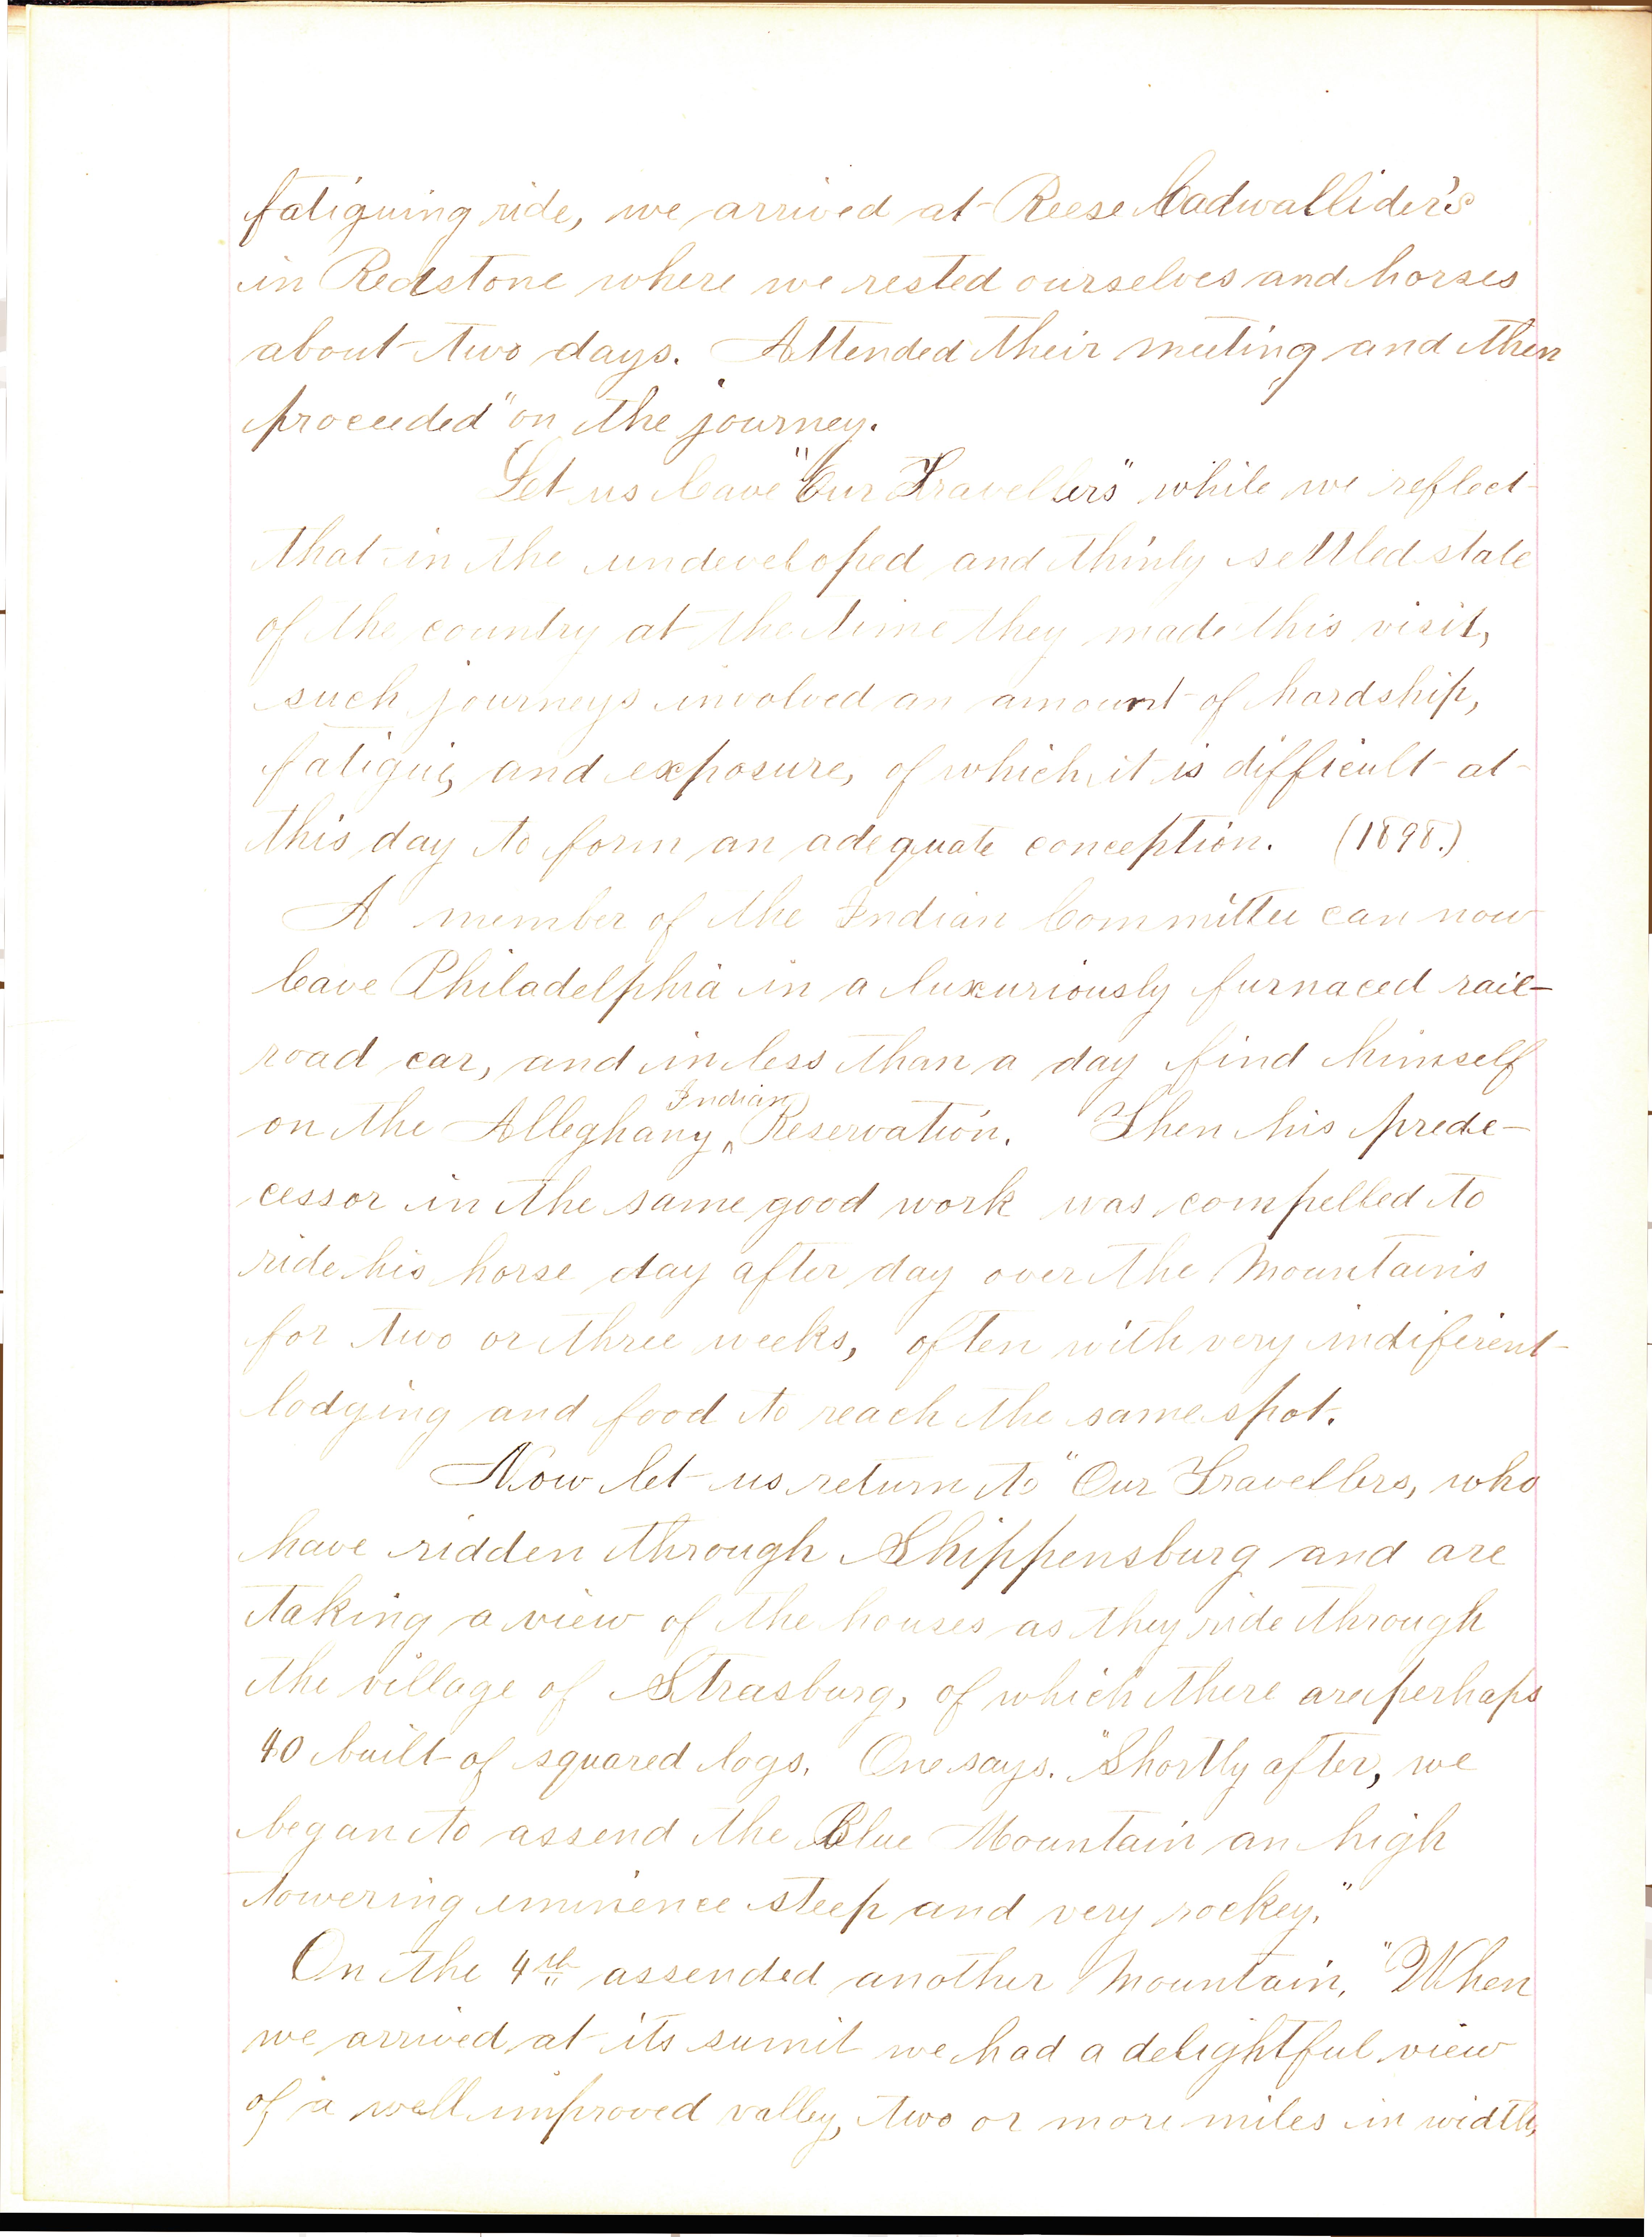 fatiguing ride, we arrived at Reese Cadwallider's
in Redstone where we rested ourselves and horses
about two days. Attended their meeting and then
proceeded" on the journey.
Let us leave "Our Travellers" while we reflect
that in the undeveloped and thinly settled state
of the country at the time they made this visit,
such journeys involved an amount of hardship,
fatigue, and exposure, of which it is difficult at
this day to form an adequate conception. (1898.)
A member of the Indian Committee can now
leave Philadelphia in a luxuriously furnaced rail-
road car, and in less than a day find himself
on the Alleghany Indian Reservation. Then his prede-
cessor in the same good work was compelled to
ride his horse day after day over the Mountains
for two or three weeks, often with very indiferent
lodging and food to reach the same spot.
Now let us return to "Our Travellers, who
have ridden through Shippensburg and are
taking a view of the houses as they ride through
the village of Strasburg, of which there are perhaps
40 built of squared logs. One says. "Shortly after, we
began to assend the Blue Mountain an high
towering eminence steep and very rockey."
On the 4th assended another Mountain, "When
we arrived at its sumit we had a delightful view
of a well improved valley, two or more miles in width,